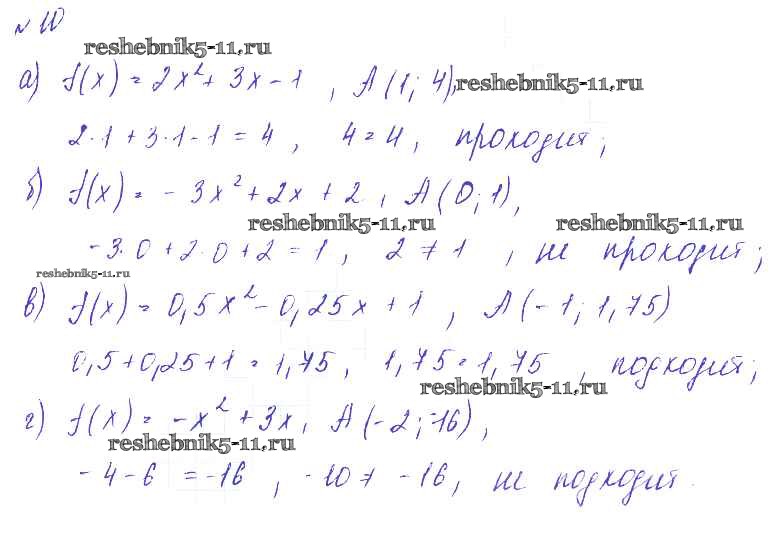 № 10
reshebnik5-11.ru
а) f(x) = 2x² + 3x - 1 , A (1; 4), reshebnik5-11.ru
2·1 + 3·1 - 1 = 4 , 4 = 4 , проходит;
б) f(x) = - 3x² + 2x + 2 , A (0; 1),
reshebnik5-11.ru reshebnik5-11.ru
-3·0 + 2·0 + 2 = 1 , 2 ≠ 1 , не проходит;
reshebnik5-11.ru
в) f(x) = 0,5x² - 0,25x + 1 , A (-1; 1,75)
0,5 + 0,25 + 1 = 1,75 , 1,75 = 1,75 , подходит;
reshebnik5-11.ru
г) f(x) = -x² + 3x , A (-2; -16),
reshebnik5-11.ru
-4 - 6 = -16 , -10 ≠ -16 , не подходит.